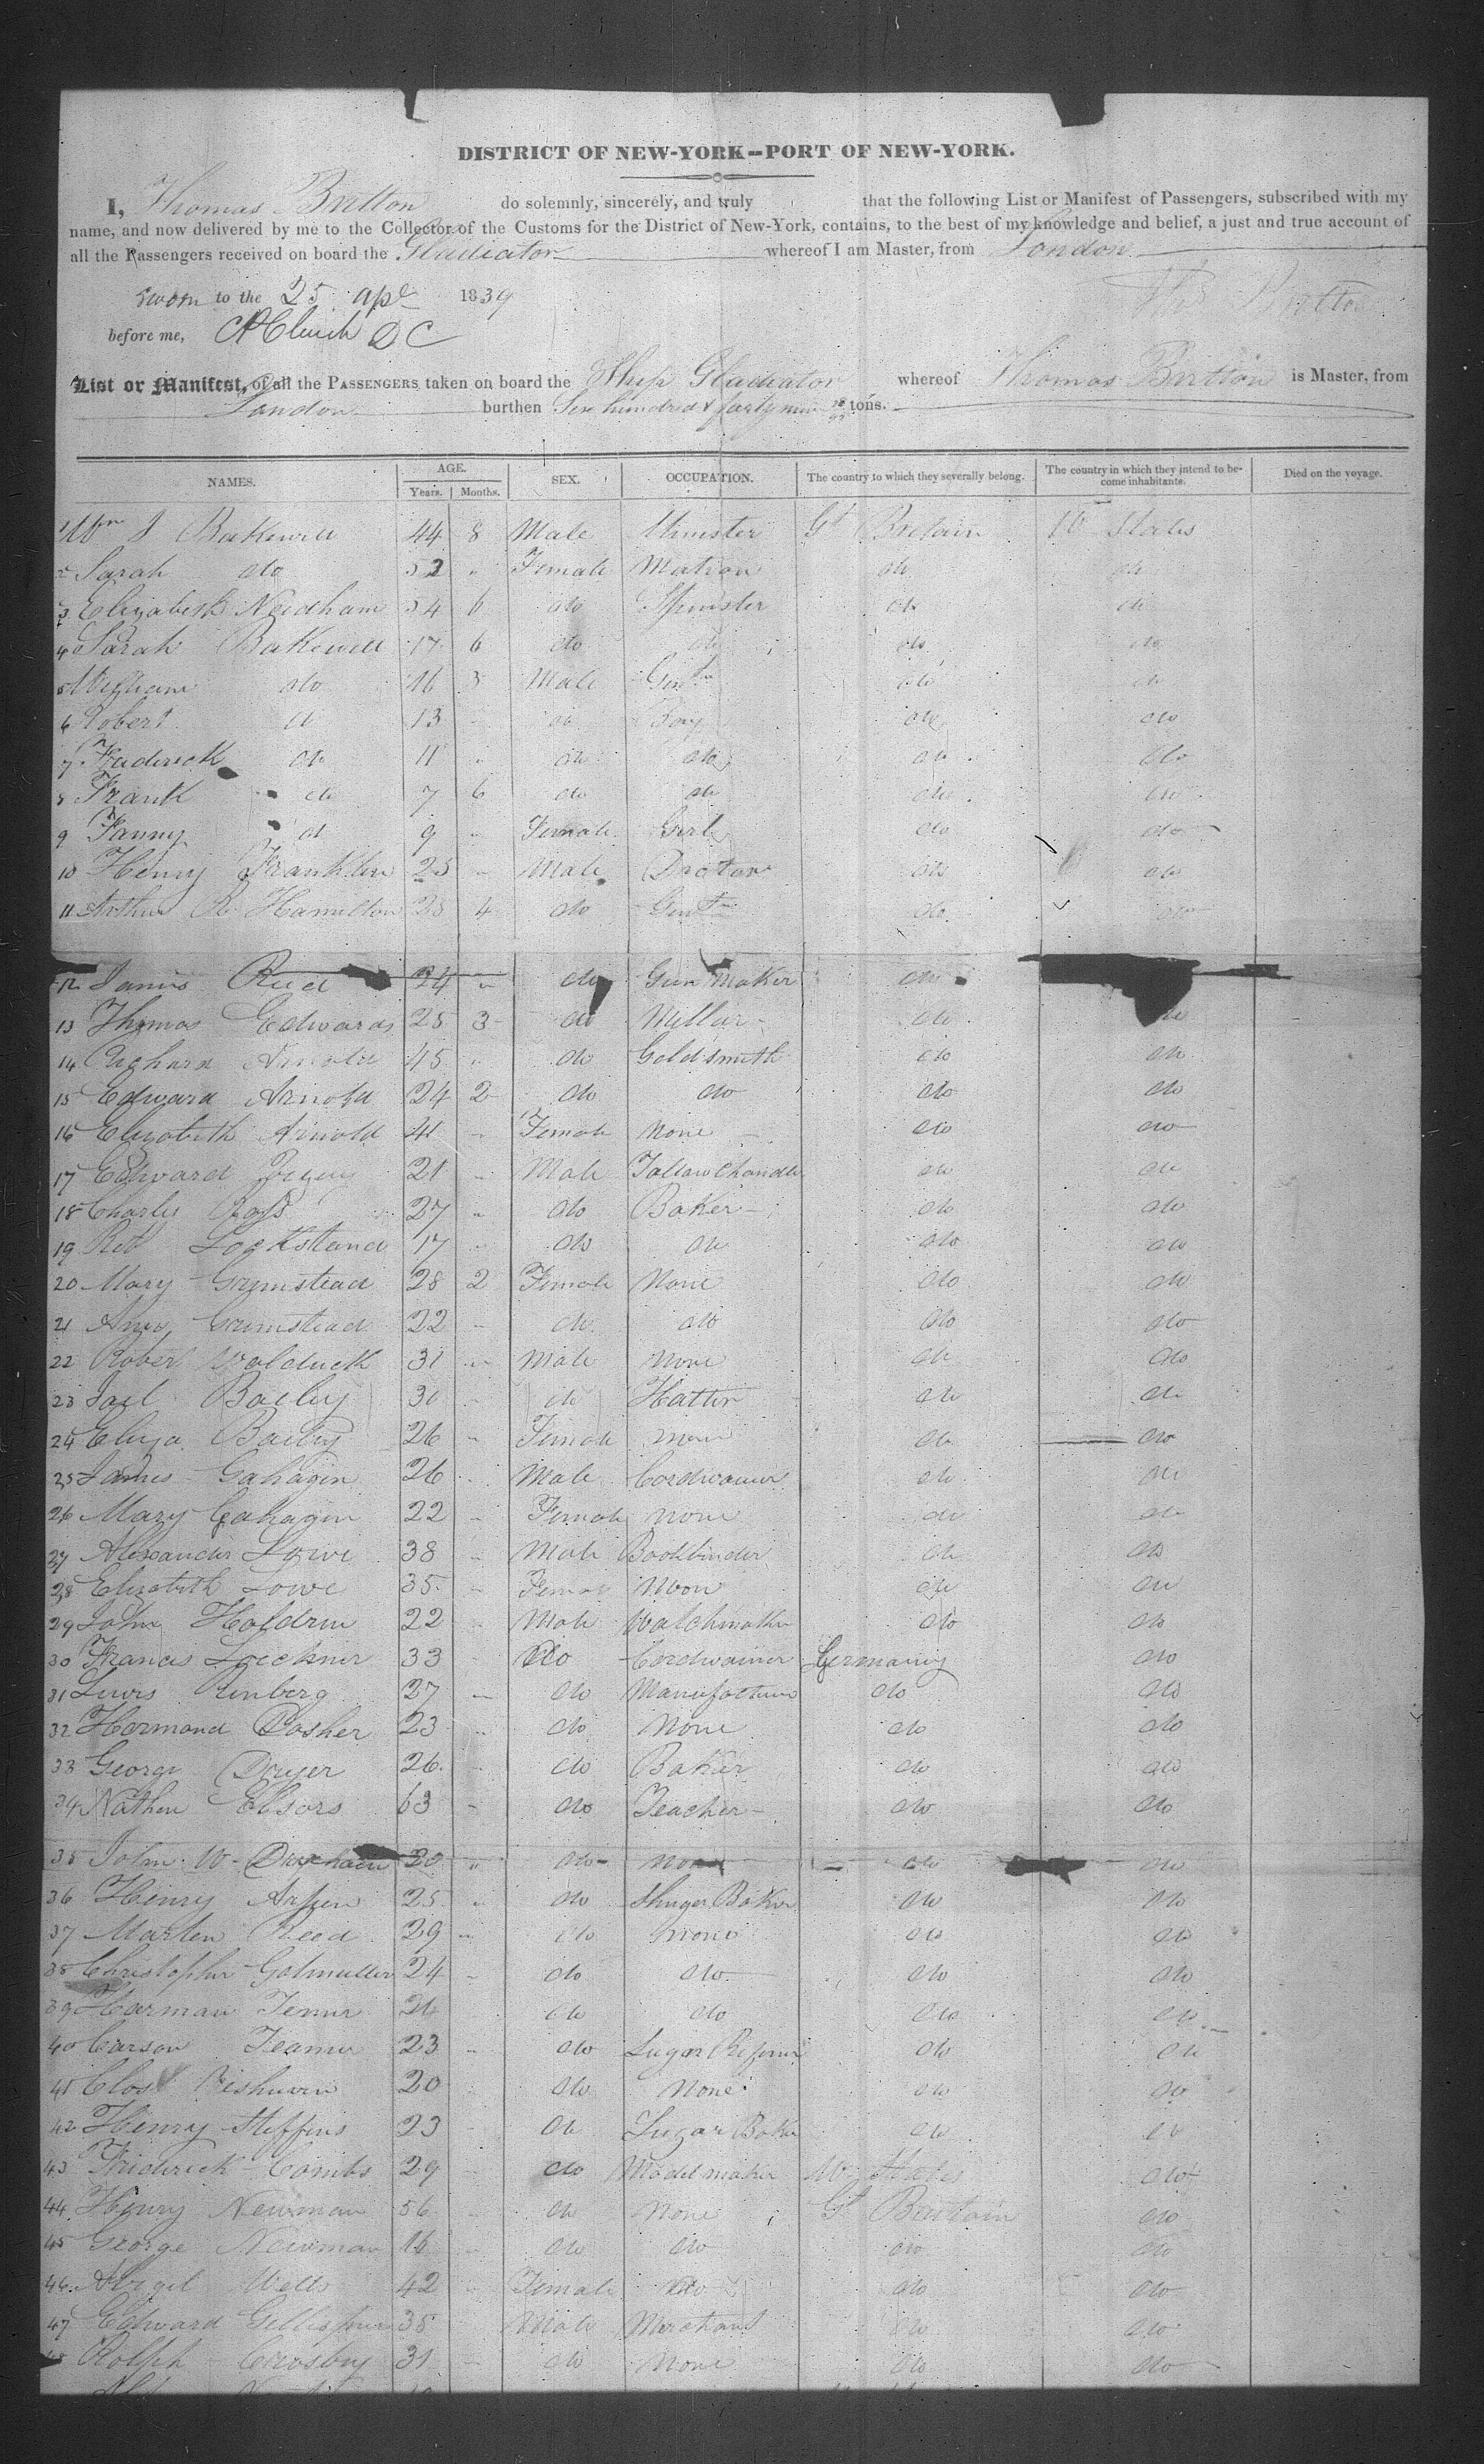 DISTRICT OF NEW-YORK--PORT OF NEW-YORK.
I, Thomas Britton do solemnly, sincerely, and truly that the following List or Manifest of Passengers, subscribed with my
name, and now delivered by me to the Collector of the Customs for the District of New-York, contains, to the best of my knowledge and belief, a just and true account of
all the Passengers received on board the Gladiator whereof I am Master, from London
Sworn to the 25 Apl 1839 Thos Britton
before me, DC
List or Manifest, of all the PASSENGERS taken on board the Ship Gladiator whereof Thomas Britton is Master, from
London burthen Six hundred & forty nine tons.
NAMES. AGE. Years. Months. SEX. OCCUPATION. The country to which they severally belong. The country in which they intend to become inhabitants. Died on the voyage.
1 Wm J Bakewell 44 8 Male Minister Gt Britain U States
2 Sarah do Female Matron do do
3 Elizabeth Needham 54 6 do Spinster do do
4 Sarah Bakewell 17 6 do do do do
5 William do 16 3 Male Gentn do do
6 Robert do 13 do Boy do do
7 Frederick do 11 do do do do
8 Frank do 7 6 do do do do
9 Fanny do 9 Female Girl do do
10 Henry Franklin 25 Male Doctor do do
11 Arthur R Hamilton 28 4 do Gentn do do
12 James Reid 24 do Gun Maker do
13 Thomas Edwards 25 3 do Millar do do
14 Richard Arnold 45 do Goldsmith do do
15 Edward Arnold 24 2 do do do do
16 Elizabeth Arnold 41 Female None do do
17 Edward 21 Male Tallow Chandler do do
18 Charles 27 do Baker do do
19 Robt Lockstand 17 do do do do
20 Mary Grimstead 28 2 Female None do do
21 Ann Grimstead 22 do do do do
22 Robert Walduck 31 Male None do do
23 Joel Bailey 30 do Hatter do do
24 Eliza Bailey 26 Female None do do
25 James Gahagin 26 Male Cordwainer do do
26 Mary Gahagin 22 Female None do do
27 Alexander Lowe 38 Male Bookbinder do do
28 Elizabeth Lowe 35 Female Noon do do
29 John Holdrin 22 Male Watchmaker do do
30 Francis Lockner 33 do Cordwainer Germany do
31 Lewis Rinberg 27 do Manufacturer do do
32 Hermand Dosher 23 do None do do
33 George Dryer 26 do Baker do do
34 Nathen Elsors 63 do Teacher do do
35 John W 30 do None do do
36 Henry 25 do Shuger Baker do do
37 Marten Reed 29 do none do do
38 Christopher Golmuller 24 do do do do
39 Harman 26 do do do do
40 Carson 23 do Sugar Refiner do do
41 Clos 20 do None do do
42 Henry Steffins 23 do Sugar Baker do do
43 Friderick Combs 29 do Model maker U States do
44 Henry Newman 56 do None Gt Britain do
45 George Newman 16 do do do do
46 Abigil Wells 42 Female do do do
47 Edward 35 Male Merchant do do
Ralph Crosby 31 do None do do